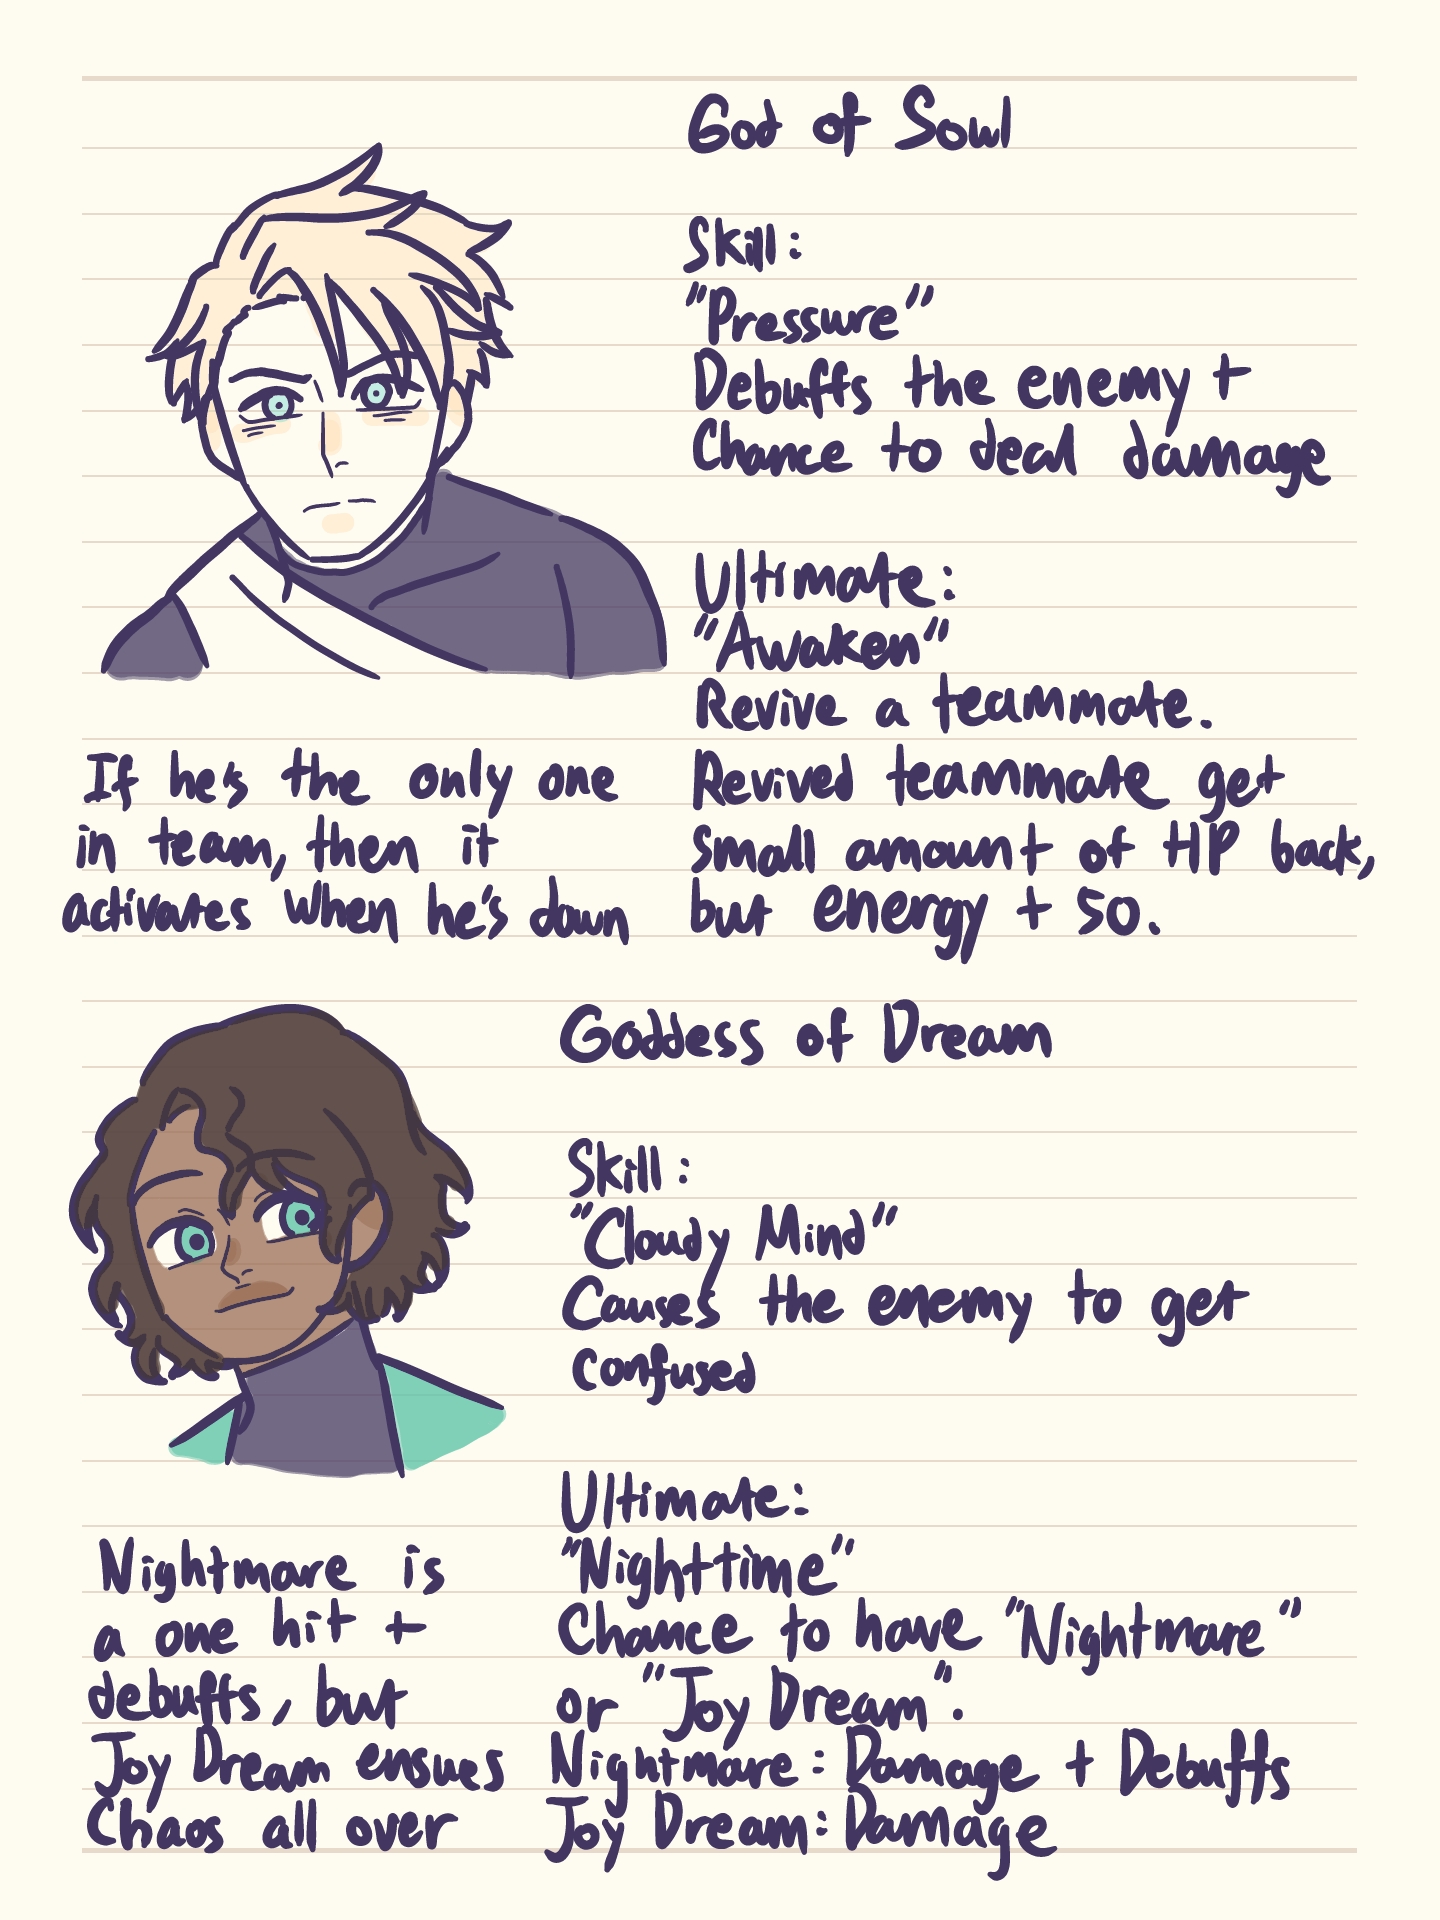 God of Soul
Skill:
"Pressure"
Debuffs the enemy +
Chance to deal damage
Ultimate:
"Awaken"
Revive a teammate.
Revived teammate get
small amount of HP back,
but energy + 50.
If he's the only one
in team, then it
activates when he's down
Goddess of Dream
Skill:
"Cloudy Mind"
Causes the enemy to get
confused
Ultimate:
"Nighttime"
Chance to have "Nightmare"
or "Joy Dream".
Nightmare: Damage + Debuffs
Joy Dream: Damage
Nightmare is
a one hit +
debuffs, but
Joy Dream ensues
Chaos all over